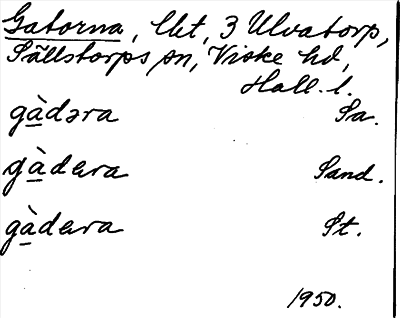 Gatorna, lht, 3 Ulvatorp,
Sällstorps sn, Viske hd,
Hall. l.
gàdəra Sa.
gàdɛra Sand.
gàdɛra St.
1950.